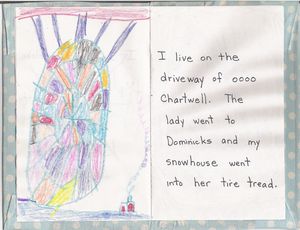 I live on the
driveway of 0000
Chartwell. The
lady went to
Dominicks and my
snowhouse went
into her tire tread.